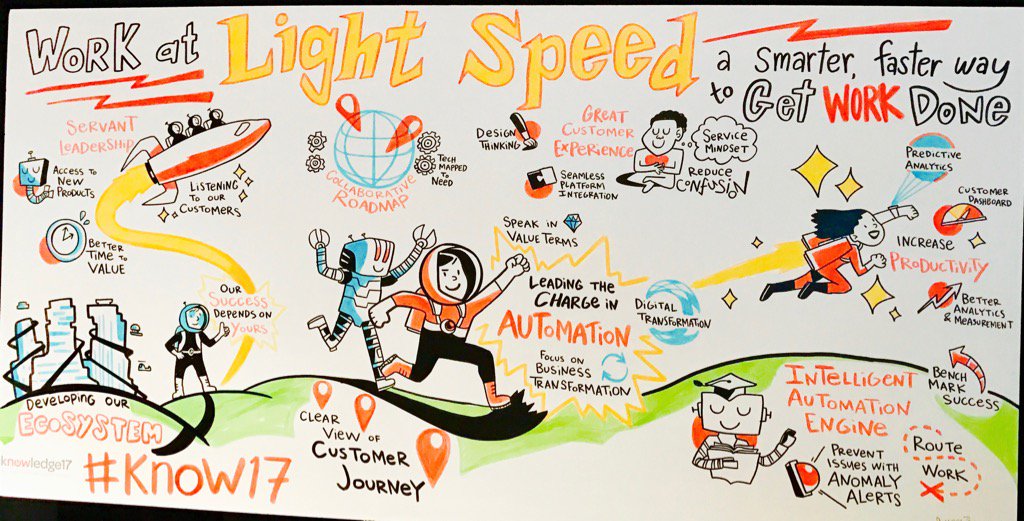 Work at Light Speed
a smarter, faster way
to Get Work Done
Servant
Leadership
Access to
New
Products
Listening
to our
Customers
Better
Time to
Value
Our
Success
Depends on
Yours
Developing our
Ecosystem
knowledge17
#Know17
Collaborative
Roadmap
Tech
Mapped
to
Need
Design
Thinking
Great
Customer
Experience
Seamless
Platform
Integration
Service
Mindset
Reduce
Confusion
Speak in
Value Terms
Leading the
Charge in
Automation
Focus on
Business
Transformation
Digital
Transformation
Clear
View of
Customer
Journey
Predictive
Analytics
Customer
Dashboard
Increase
Productivity
Better
Analytics
& Measurement
Intelligent
Automation
Engine
Bench
Mark
Success
Prevent
Issues with
Anomaly
Alerts
Route
Work